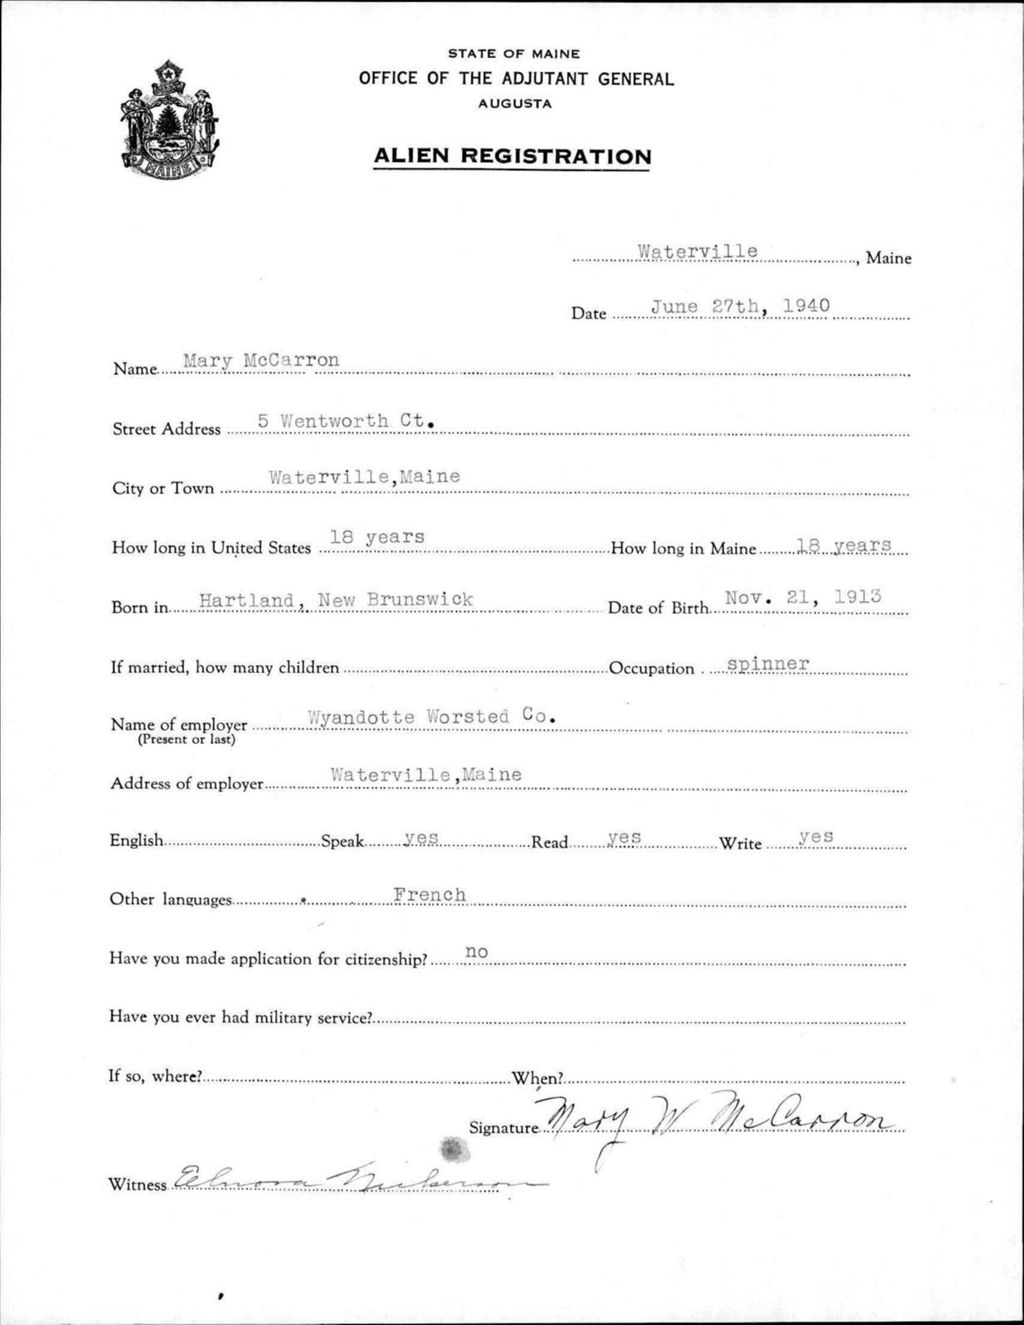 STATE OF MAINE
OFFICE OF THE ADJUTANT GENERAL
AUGUSTA
ALIEN REGISTRATION
MAINE
Waterville, Maine
Date June 27th, 1940
Name Mary McCarron
Street Address 5 Wentworth Ct.
City or Town Waterville,Maine
How long in United States 18 years How long in Maine 18 years
Born in Hartland, New Brunswick Date of Birth Nov. 21, 1913
If married, how many children Occupation spinner
Name of employer Wyandotte Worsted Co.
(Present or last)
Address of employer Waterville,Maine
English Speak yes Read yes Write yes
Other languages French
Have you made application for citizenship? no
Have you ever had military service?
If so, where? When?
Signature Mary W McCarron
Witness Elnora Nickerson